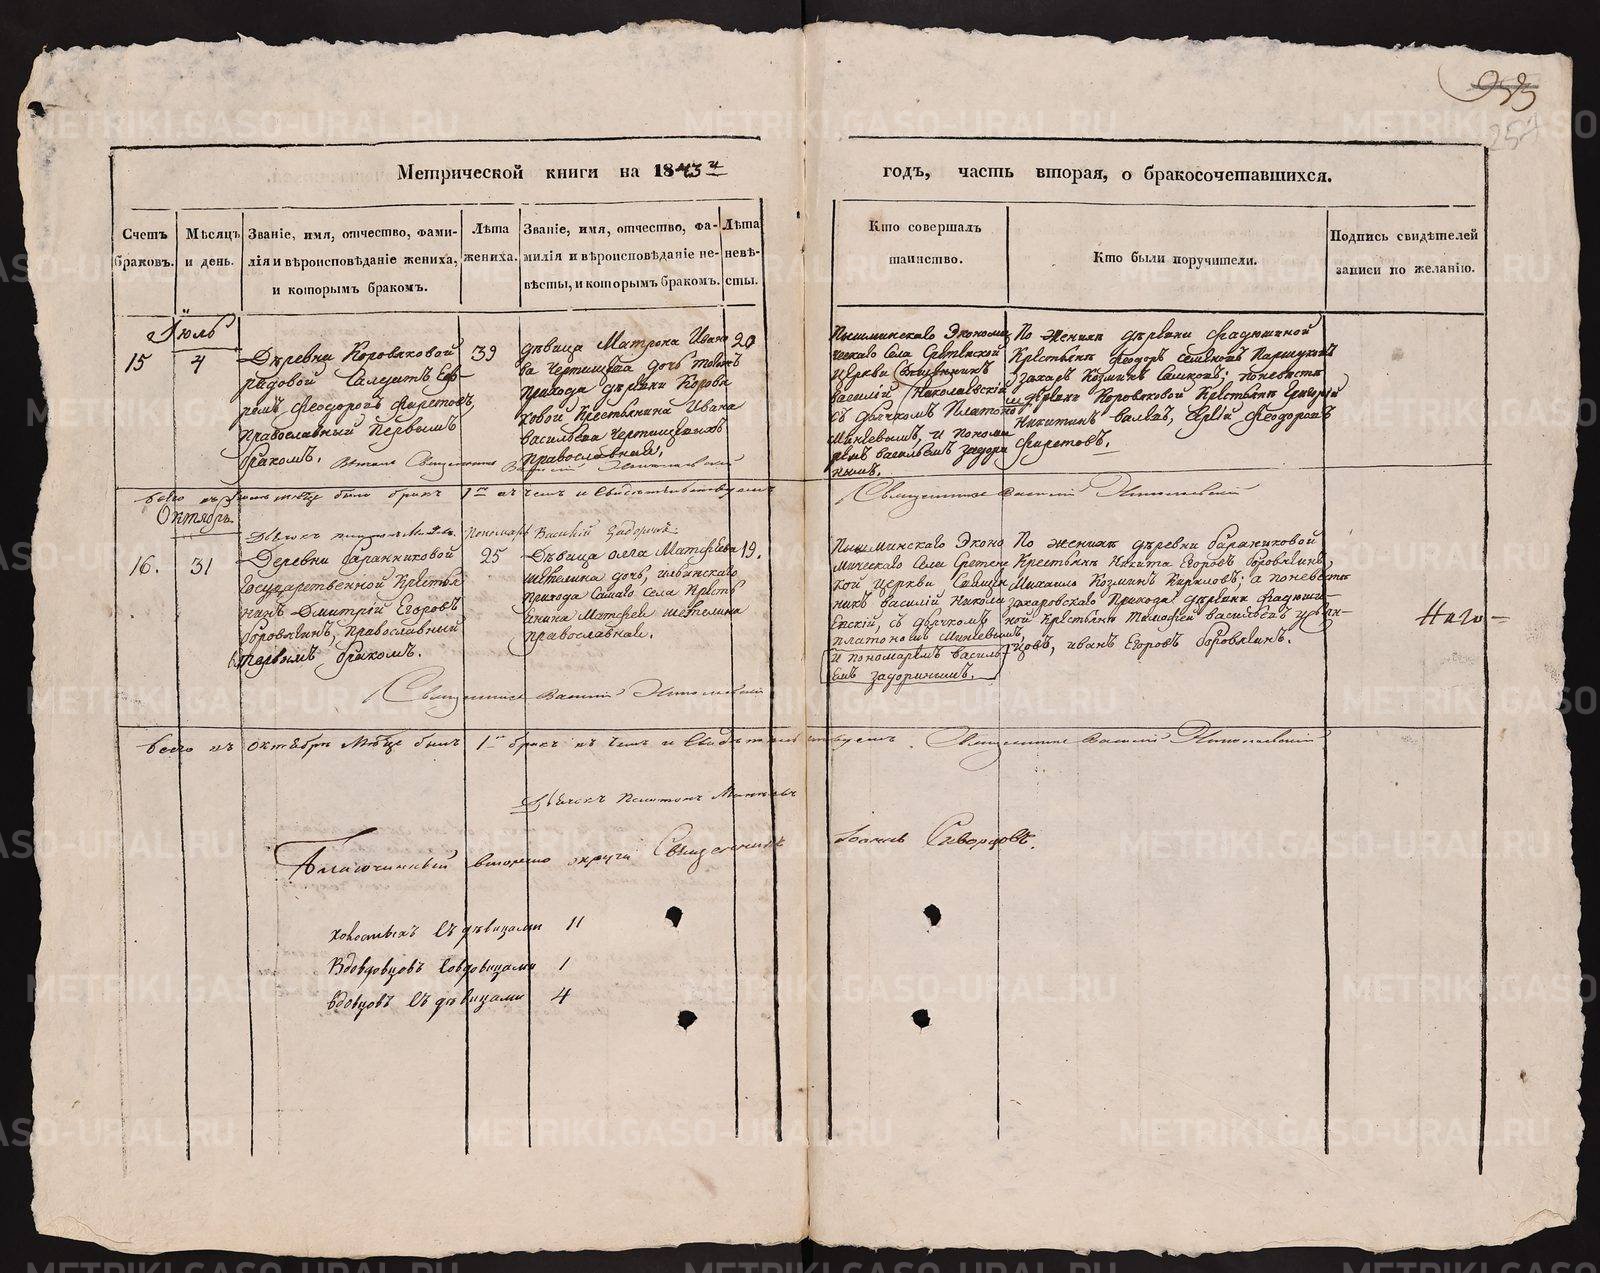 253
254
Метрической книги на 1843й
годъ, часть вторая, о бракосочетавшихся.
Счетъ браковъ.
Мѣсяцъ и день.
Званіе, имя, отчество, фами-
лія и вѣроисповѣданіе жениха,
и которымъ бракомъ.
Лѣта
жениха.
Званіе, имя, отчество, фа-
милія и вѣроисповѣданіе не-
вѣсты, и которымъ бракомъ.
Лѣта
невѣ-
сты.
Кто совершалъ
таинство.
Кто были поручители.
Подпись свидѣтелей
записи по желанію.
Іюль
15
4
Деревни Коровяковой
рядовой Салдатъ Еф-
ремъ Феодоровъ Фиретовъ,
Православный Первымъ
бракомъ.
39
дѣвица Матрона Ивано
ва Чертищева дочь тогожъ
Прихода деревни Корова
ковой Крестьянина Ивана
Васильева Чертищевыхъ
Православная,
20
Пышминскаго Экономи
ческаго Села Сретенской
церкви Священникъ
Василій Николаевскій
съ дьячкомъ Платоно
Минѣевымъ, и Понома
ремъ Васильемъ Задори
нымъ.
По женихѣ деревни Фадюшиной
Крестьяне Феодоръ Семеновъ
Захаръ Козминъ
деревни Коровяковой Крестьяне Григорій
Никитинъ Феодоровъ
Фиретовъ.
Священникъ Василій Николаевскій
Всего въ Іюлѣ мѣсяце было бракъ 1нъ въ чемъ и Свидѣтельствуемъ
Священникъ Василій Николаевскій
Октябрь.
Пономарь Василій Задоринъ.
16.
31
Деревни Баранниковой
Государственной Крестья
нинъ Дмитрій Егоровъ
Боровлянъ, Православный
Первымъ бракомъ.
25
Дѣвица Матфѣева
Шетелина дочь,
прихода Самаго Села Кресть
янина Матфея Шетелина
Православная.
19.
Пышминскаго Эконо
мическаго Села Сретенс
кой церкви Священ
никъ Василій Никола
евскій, съ дьячкомъ
Платономъ Минѣевымъ,
и Пономаремъ Василь
емъ Задоринымъ.
По женихѣ деревни Бараниковой
Крестьяне Никита Егоровъ Боровлянъ,
Михайло Козминъ Кириловъ; а по невесте
Захаровскаго Прихода деревни Фадюши-
ной Крестьяне Тимофей Васильевъ
Иванъ Егоровъ Боровлянъ.
Священникъ Василій Николаевскій
Всего въ Октябрѣ Мѣсяце былъ 1нъ бракъ въ чемъ и Свидѣтельствуемъ. Священникъ Василій Николаевскій
Дьячокъ Платонъ Минѣевъ
Благочинный втораго округи Священникъ Іоаннъ Скворцовъ.
Холостыхъ съ дѣвицами 11
Вдовцовъ со вдовицами 1
Вдовцовъ съ дѣвицами 4
METRIKI.GASO-URAL.RU